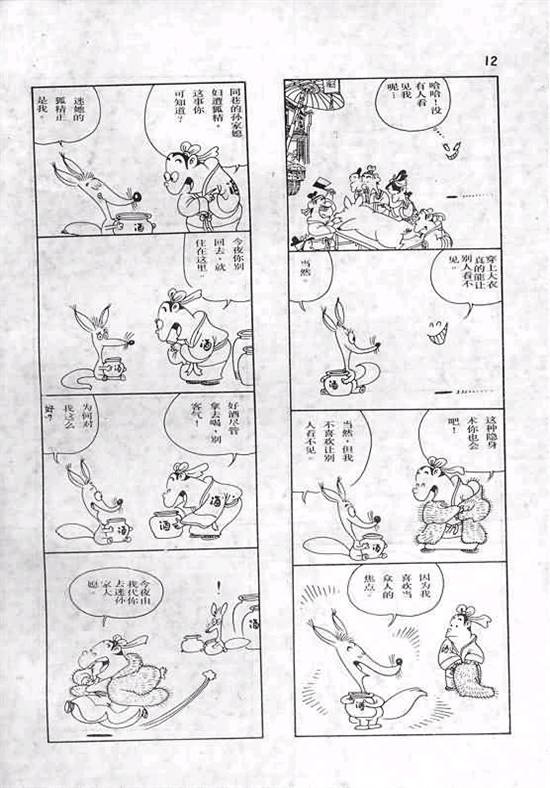 12
同巷的孙家媳
妇遭狐精，
这事你
可知道？
迷她的
狐精正
是我。
酒
酒
今夜你别
回去，就
住在这里。
酒
酒
好酒尽管
拿去喝，别
客气！
为何对
我这么
好？
酒
！
今夜由
我代你
去迷孙
家大
媳。
酒
哈哈！没
有人看
见我
呢…
穿上大衣
真的能让
别人看不
见。
当然。
酒
这种隐身
术你也会
吧！
当然，但我
不喜欢让别
人看不见。
酒
因为我
喜欢当
众人的
焦点。
酒